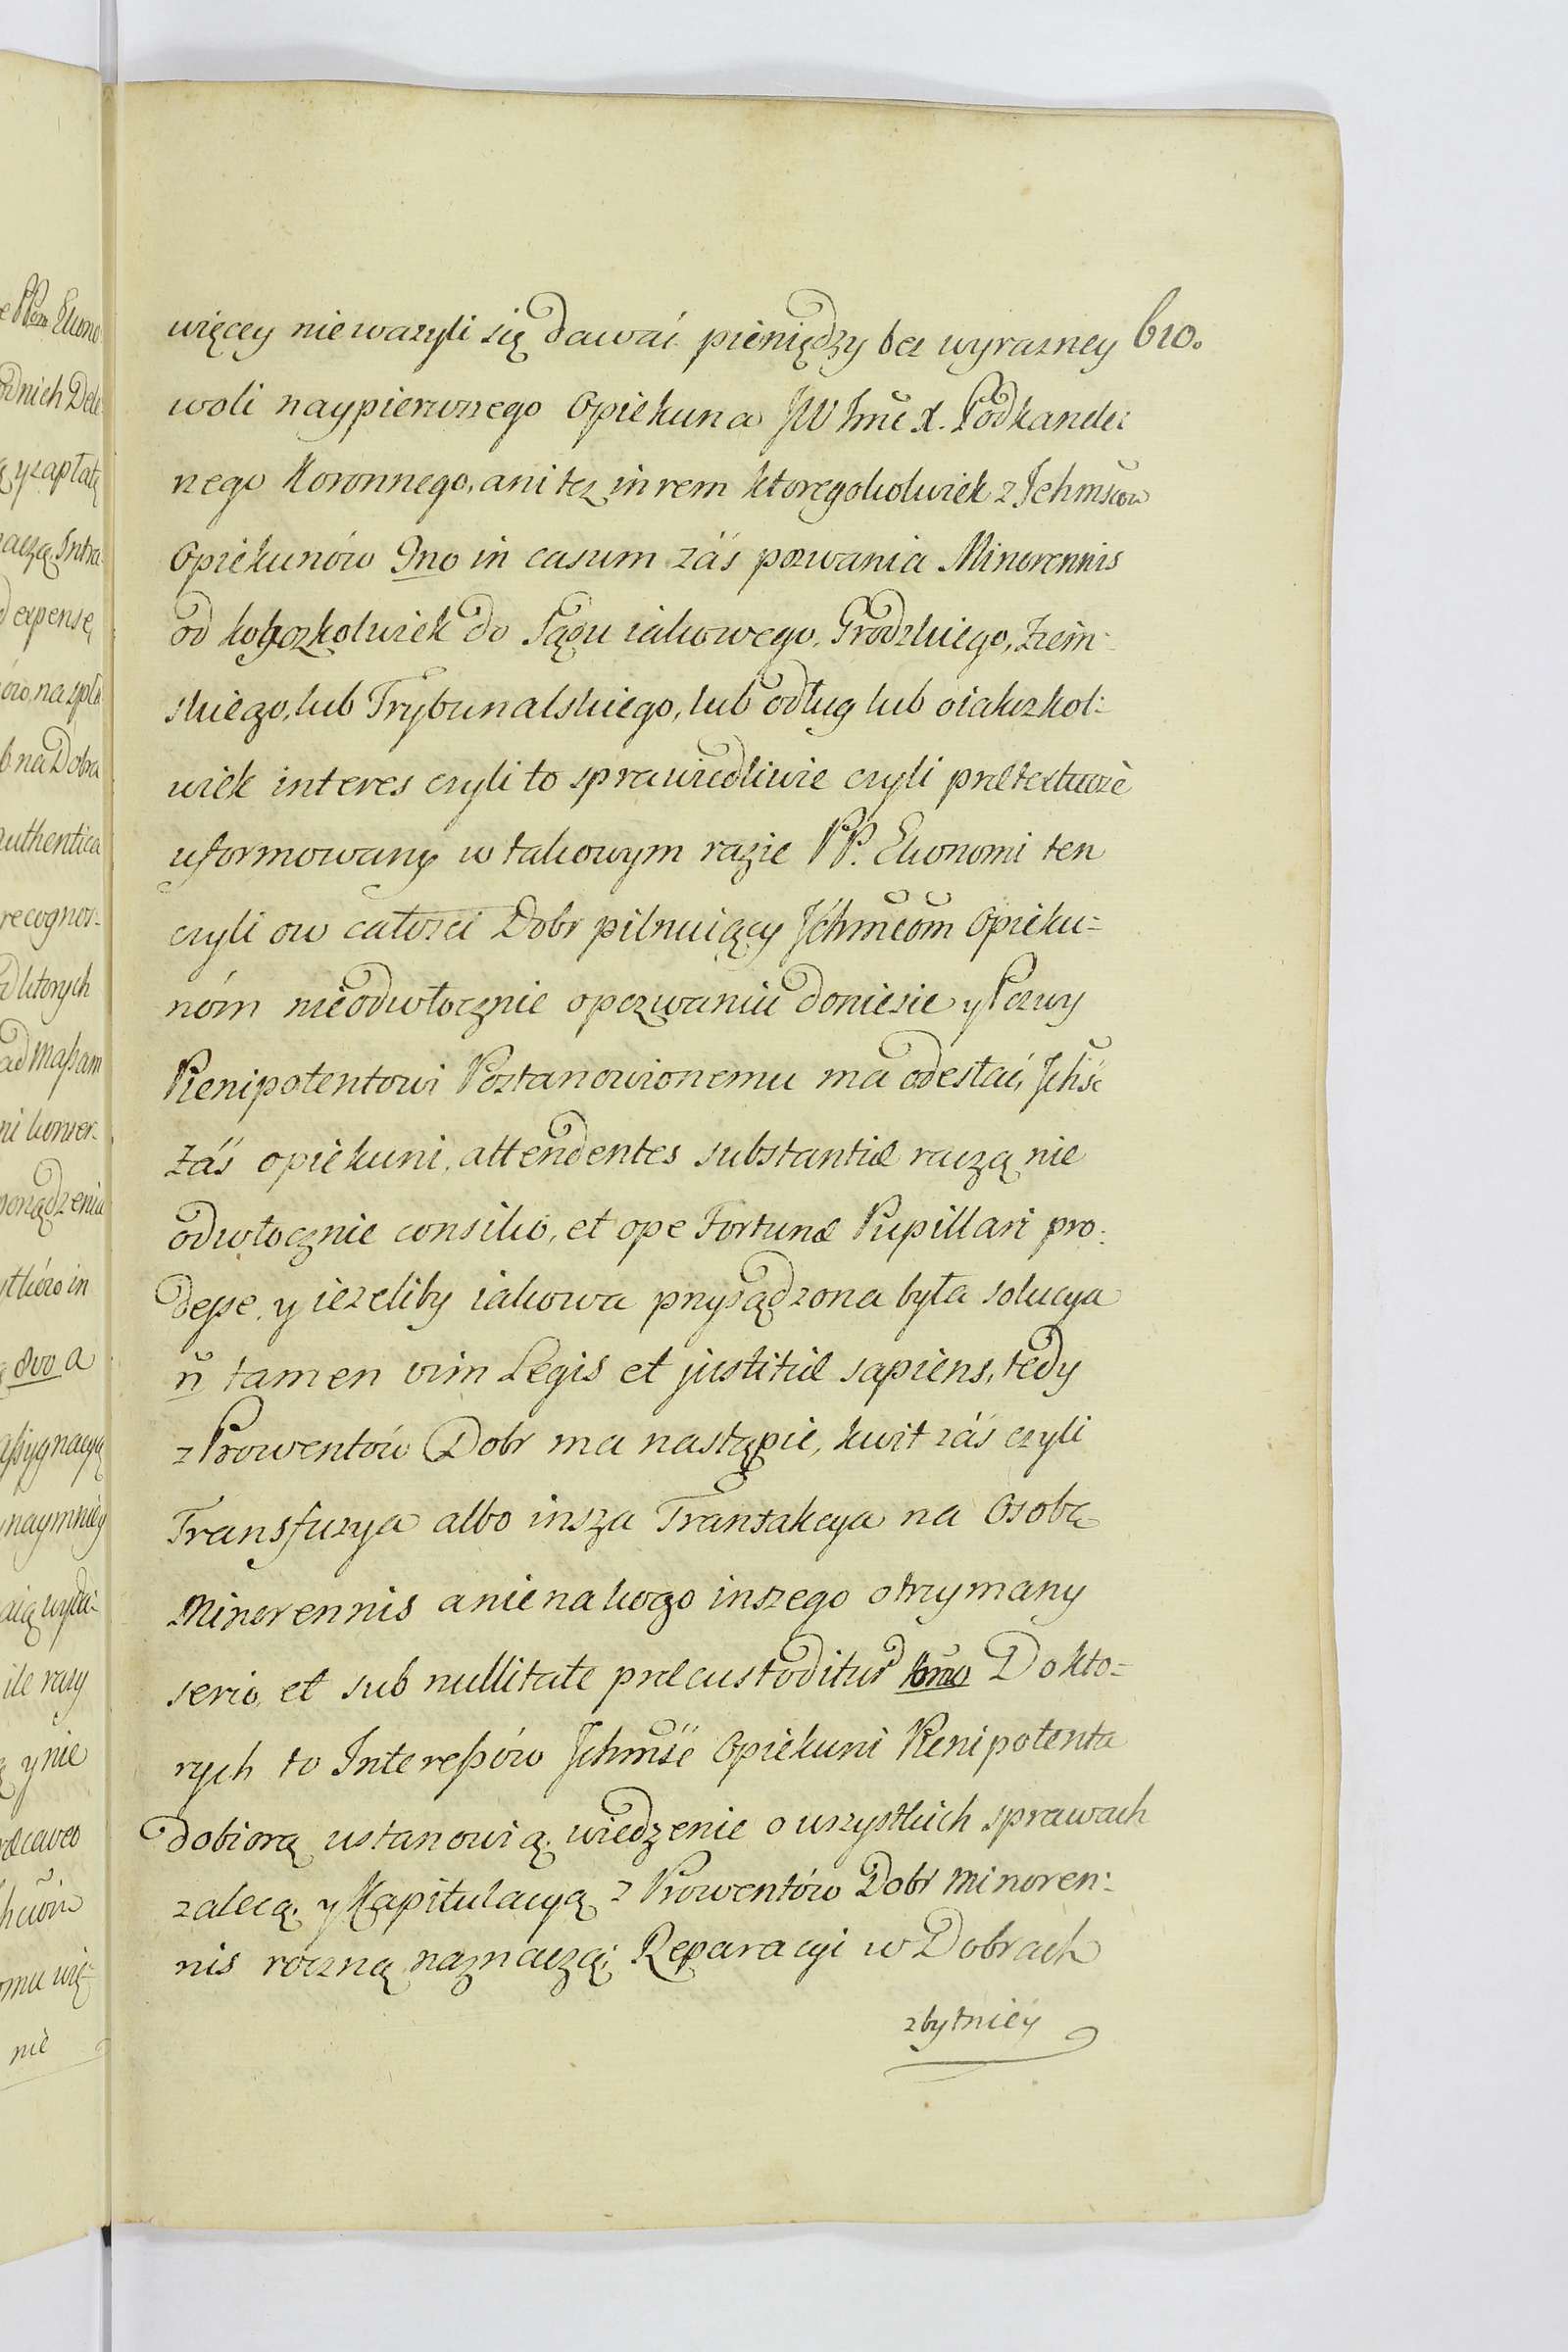 610.
więcey nie wazyli się dawać pieniędzy bez wyrazney
woli naypierwszego Opiekuna JW Jmć X. Podkancler
nego Koronnego, ani tez in rem ktoregokolwiek z Jchmściow
Opiekunów 9no in casum záś pozwania Minorennis
od kogozkolwiek do Sądu iakowego, Grodzkiego, Ziem:
skiego, lub Trybunalskiego, lub o dług lub o iakizkol:
wiek interes czyli to sprawiedliwie czyli prætextuosè
uformowany w takowym razie PP. Ekonomi ten
czyli ow całości Dobr pilnuiący Jchmćom Opieku=
nóm nieodwłocznie o pozwaniu doniesie y Pozwy
Plenipotentowi Postanowionemu ma odesłać, Jchść
záś opiekuni, attendentes substantiæ raczą nie
odwłocznie consilio, et ope Fortunæ Pupillari pro:
desse, y iezeliby iakowa przysądzona była solucya
ñ tamen vim Legis et justitiæ sapiens, tedy
z Prowentów Dobr ma nastąpić, kwit záś czyli
Transfuzya albo insza Transakcya na Osobę
Minorennis a nie na kogo inszego otrzymany
serio, et sub nullitate præcustoditur 10mo Do kto=
rych to Interessów Jchmść Opiekuni Plenipotenta
dobiorą ustanowią, wiedzenie o wszystkich sprawach
zalecą, y Kapitulacyą z Prowentów Dobr Minoren:
nis roczną naznaczą; Reparacyi w Dobrach
zbytniéy